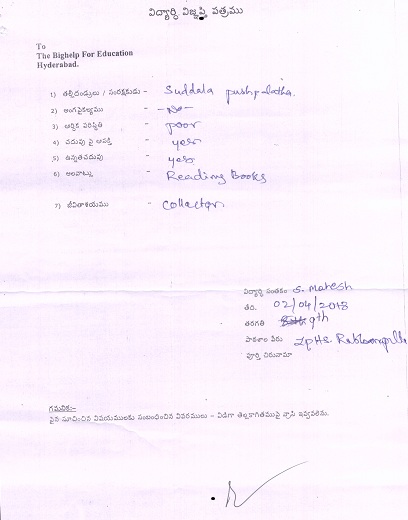 విద్యార్థి విజ్ఞప్తి పత్రము
To
The Bighelp For Education
Hyderabad.
1) తల్లిదండ్రులు / సంరక్షకుడు - Suddala pushpalatha.
2) అంగవైకల్యము - -No-
3) ఆర్థిక పరిస్థితి - poor
4) చదువు పై ఆసక్తి - yes
5) ఉన్నతచదువు - yes
6) అలవాట్లు - Reading Books
7) జీవితాశయము - collector.
విద్యార్థి సంతకం S. Mahesh
తేది. 02/04/2018
తరగతి 9th
పాఠశాల పేరు ZPHS.
పూర్తి చిరునామా
గమనిక:-
పైన సూచించిన విషయములకు సంబంధించిన వివరములు - విడిగా తెల్లకాగితముపై వ్రాసి ఇవ్వవలెను.